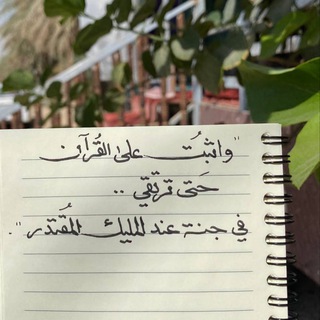 "واثبُت على القُرآن
حَتى ترتقي ..
في جنة عند المليك المُقتدر".